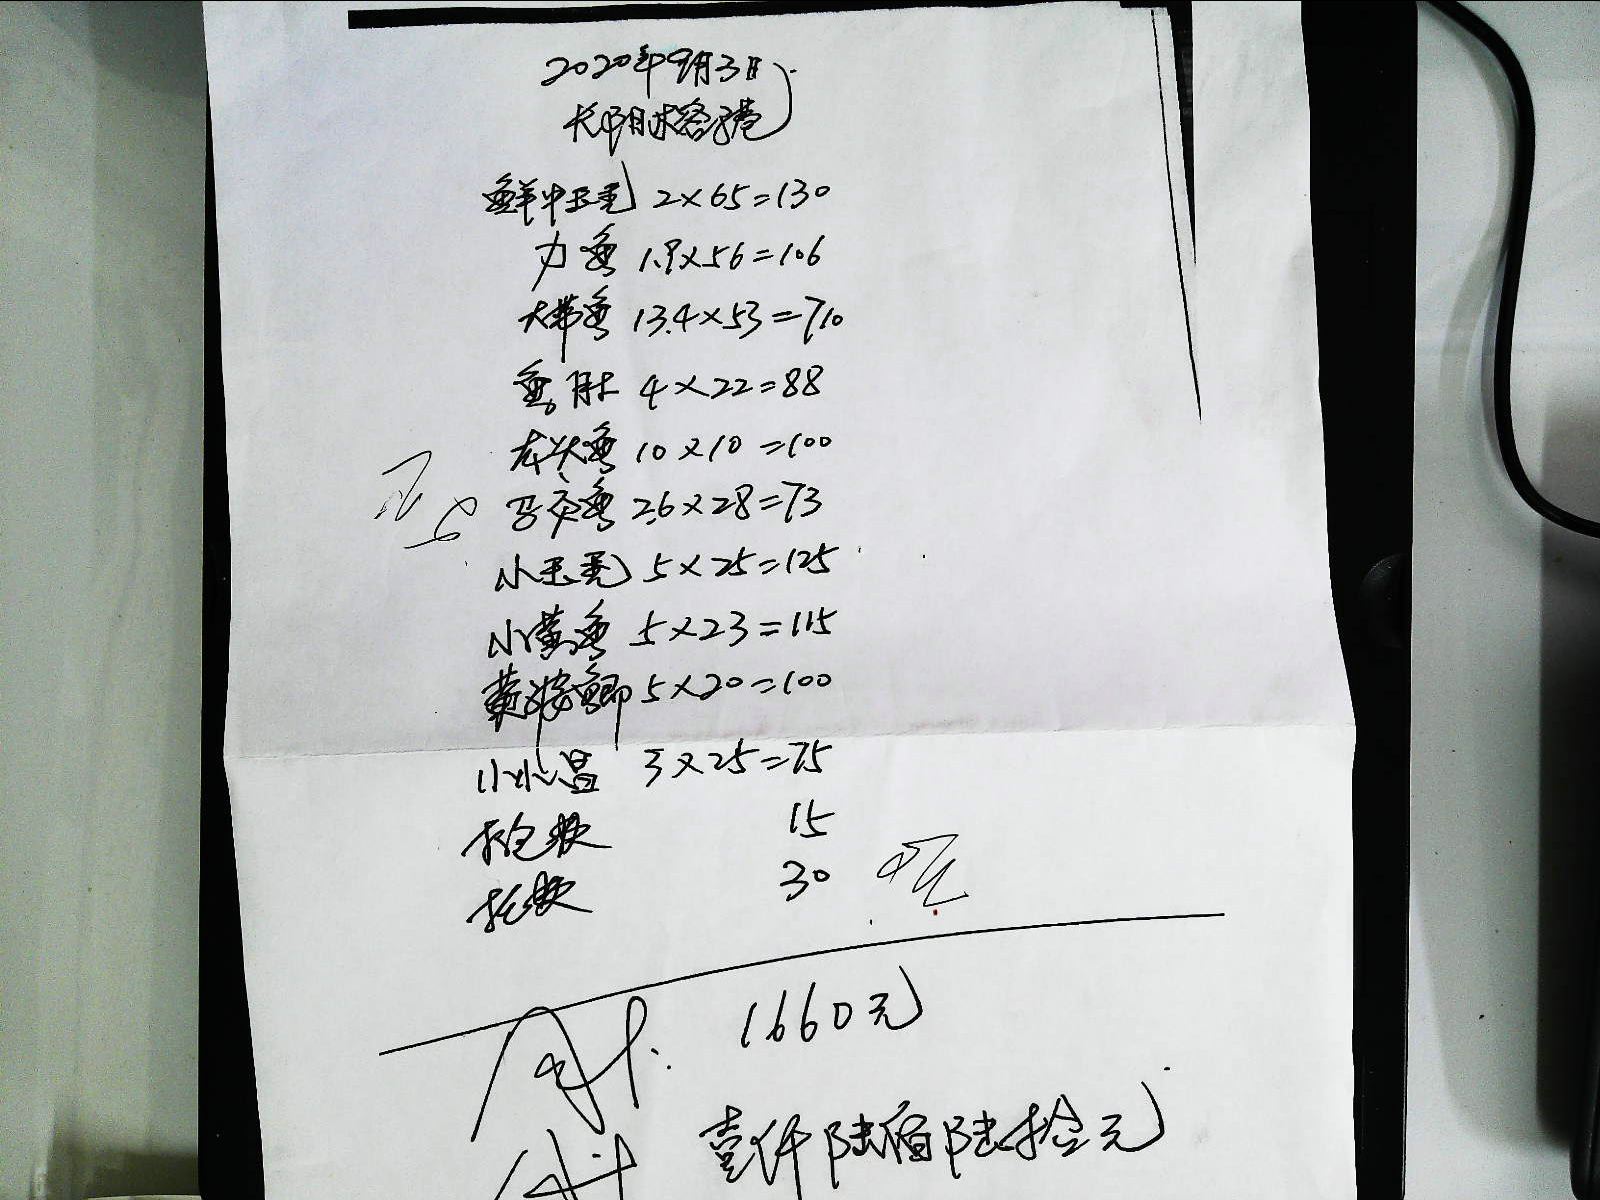 2020年9月3日
长阳沐客港
鲜中王壳 2×65=130
力鱼 1.9×56=106
大带鱼 13.4×53=710
鱼肚 4×22=88
龙头鱼 10×10=100
马交鱼 2.6×28=73
小王壳 5×25=125
小黄鱼 5×23=115
黄婆鲫 5×20=100
小水昌 3×25=75
打包费 15
托费 30
合计: 1660元
合计 壹仟陆佰陆拾元